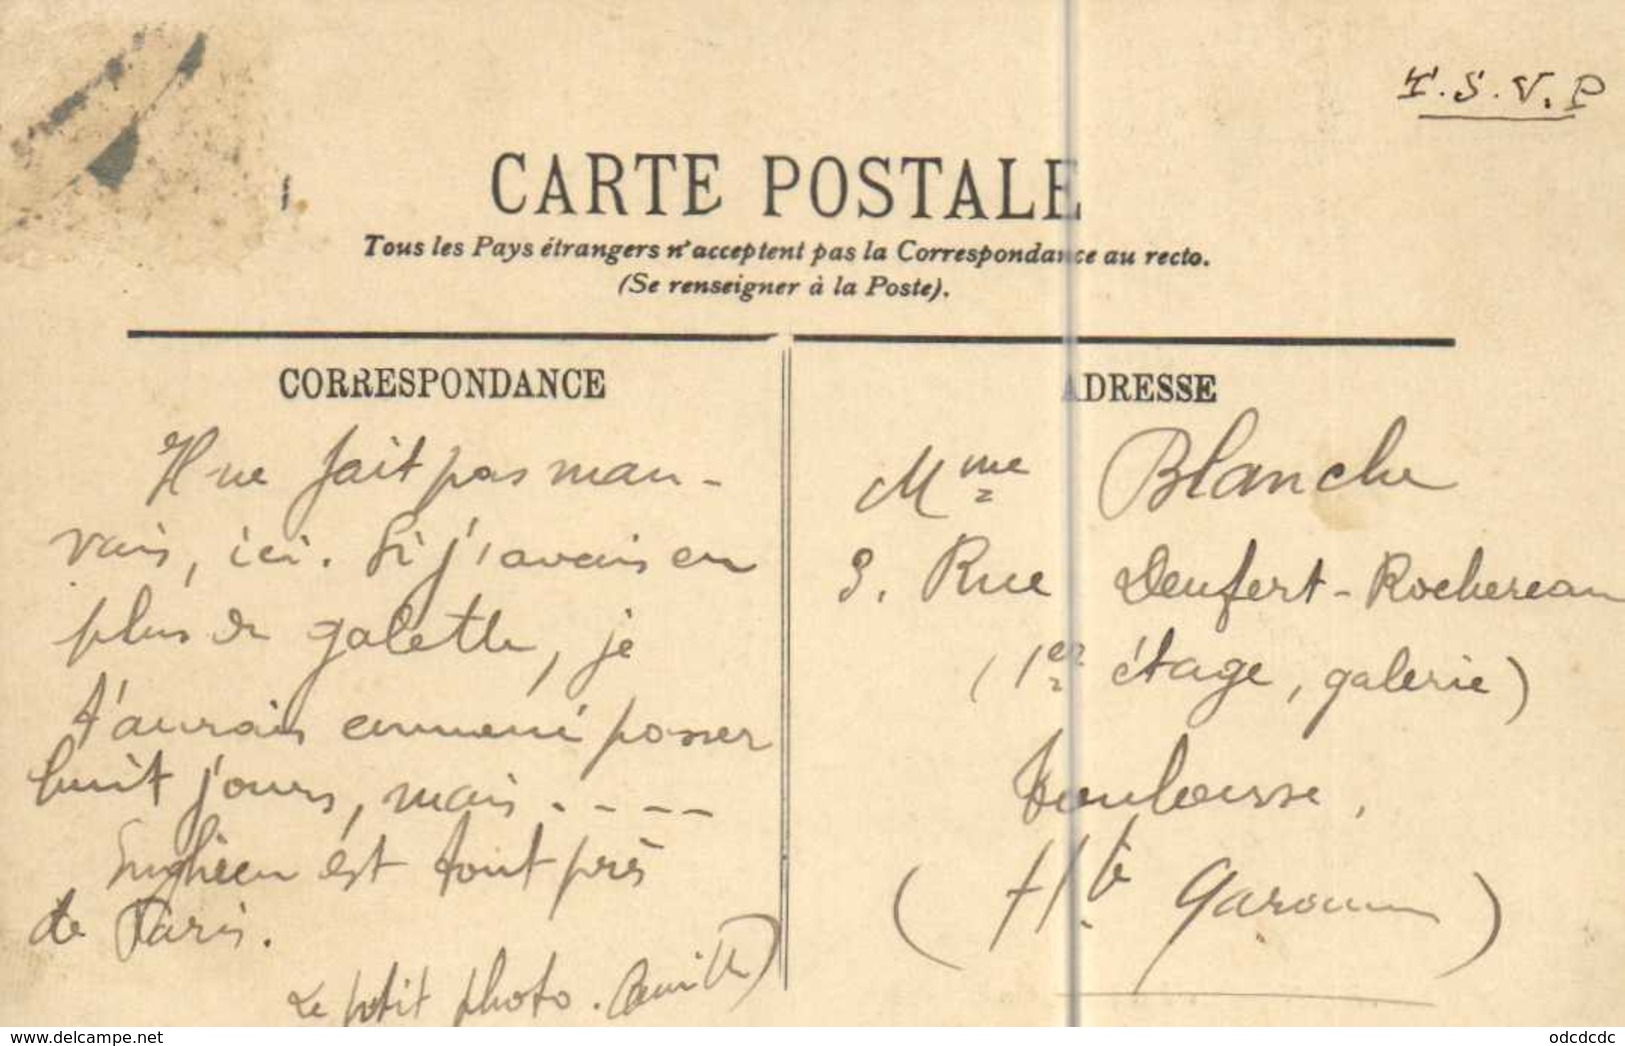 T.S.V.P
CARTE POSTALE
Tous les Pays étrangers n'acceptent pas la Correspondance au recto.
(Se renseigner à la Poste).
CORRESPONDANCE
Il ne fait pas mau-
vais, ici. Si j'avais eu
plus de galette, je
t'aurais emmené passer
huit jours, mais . - - -
Enghien est tout près
de Paris.
Le petit photo. Camille
ADRESSE
Mme Blanche
9. Rue Denfert-Rochereau
(1er étage, galerie)
Toulouse,
(Hte Garonne)
www.delcampe.net
odcdcdc